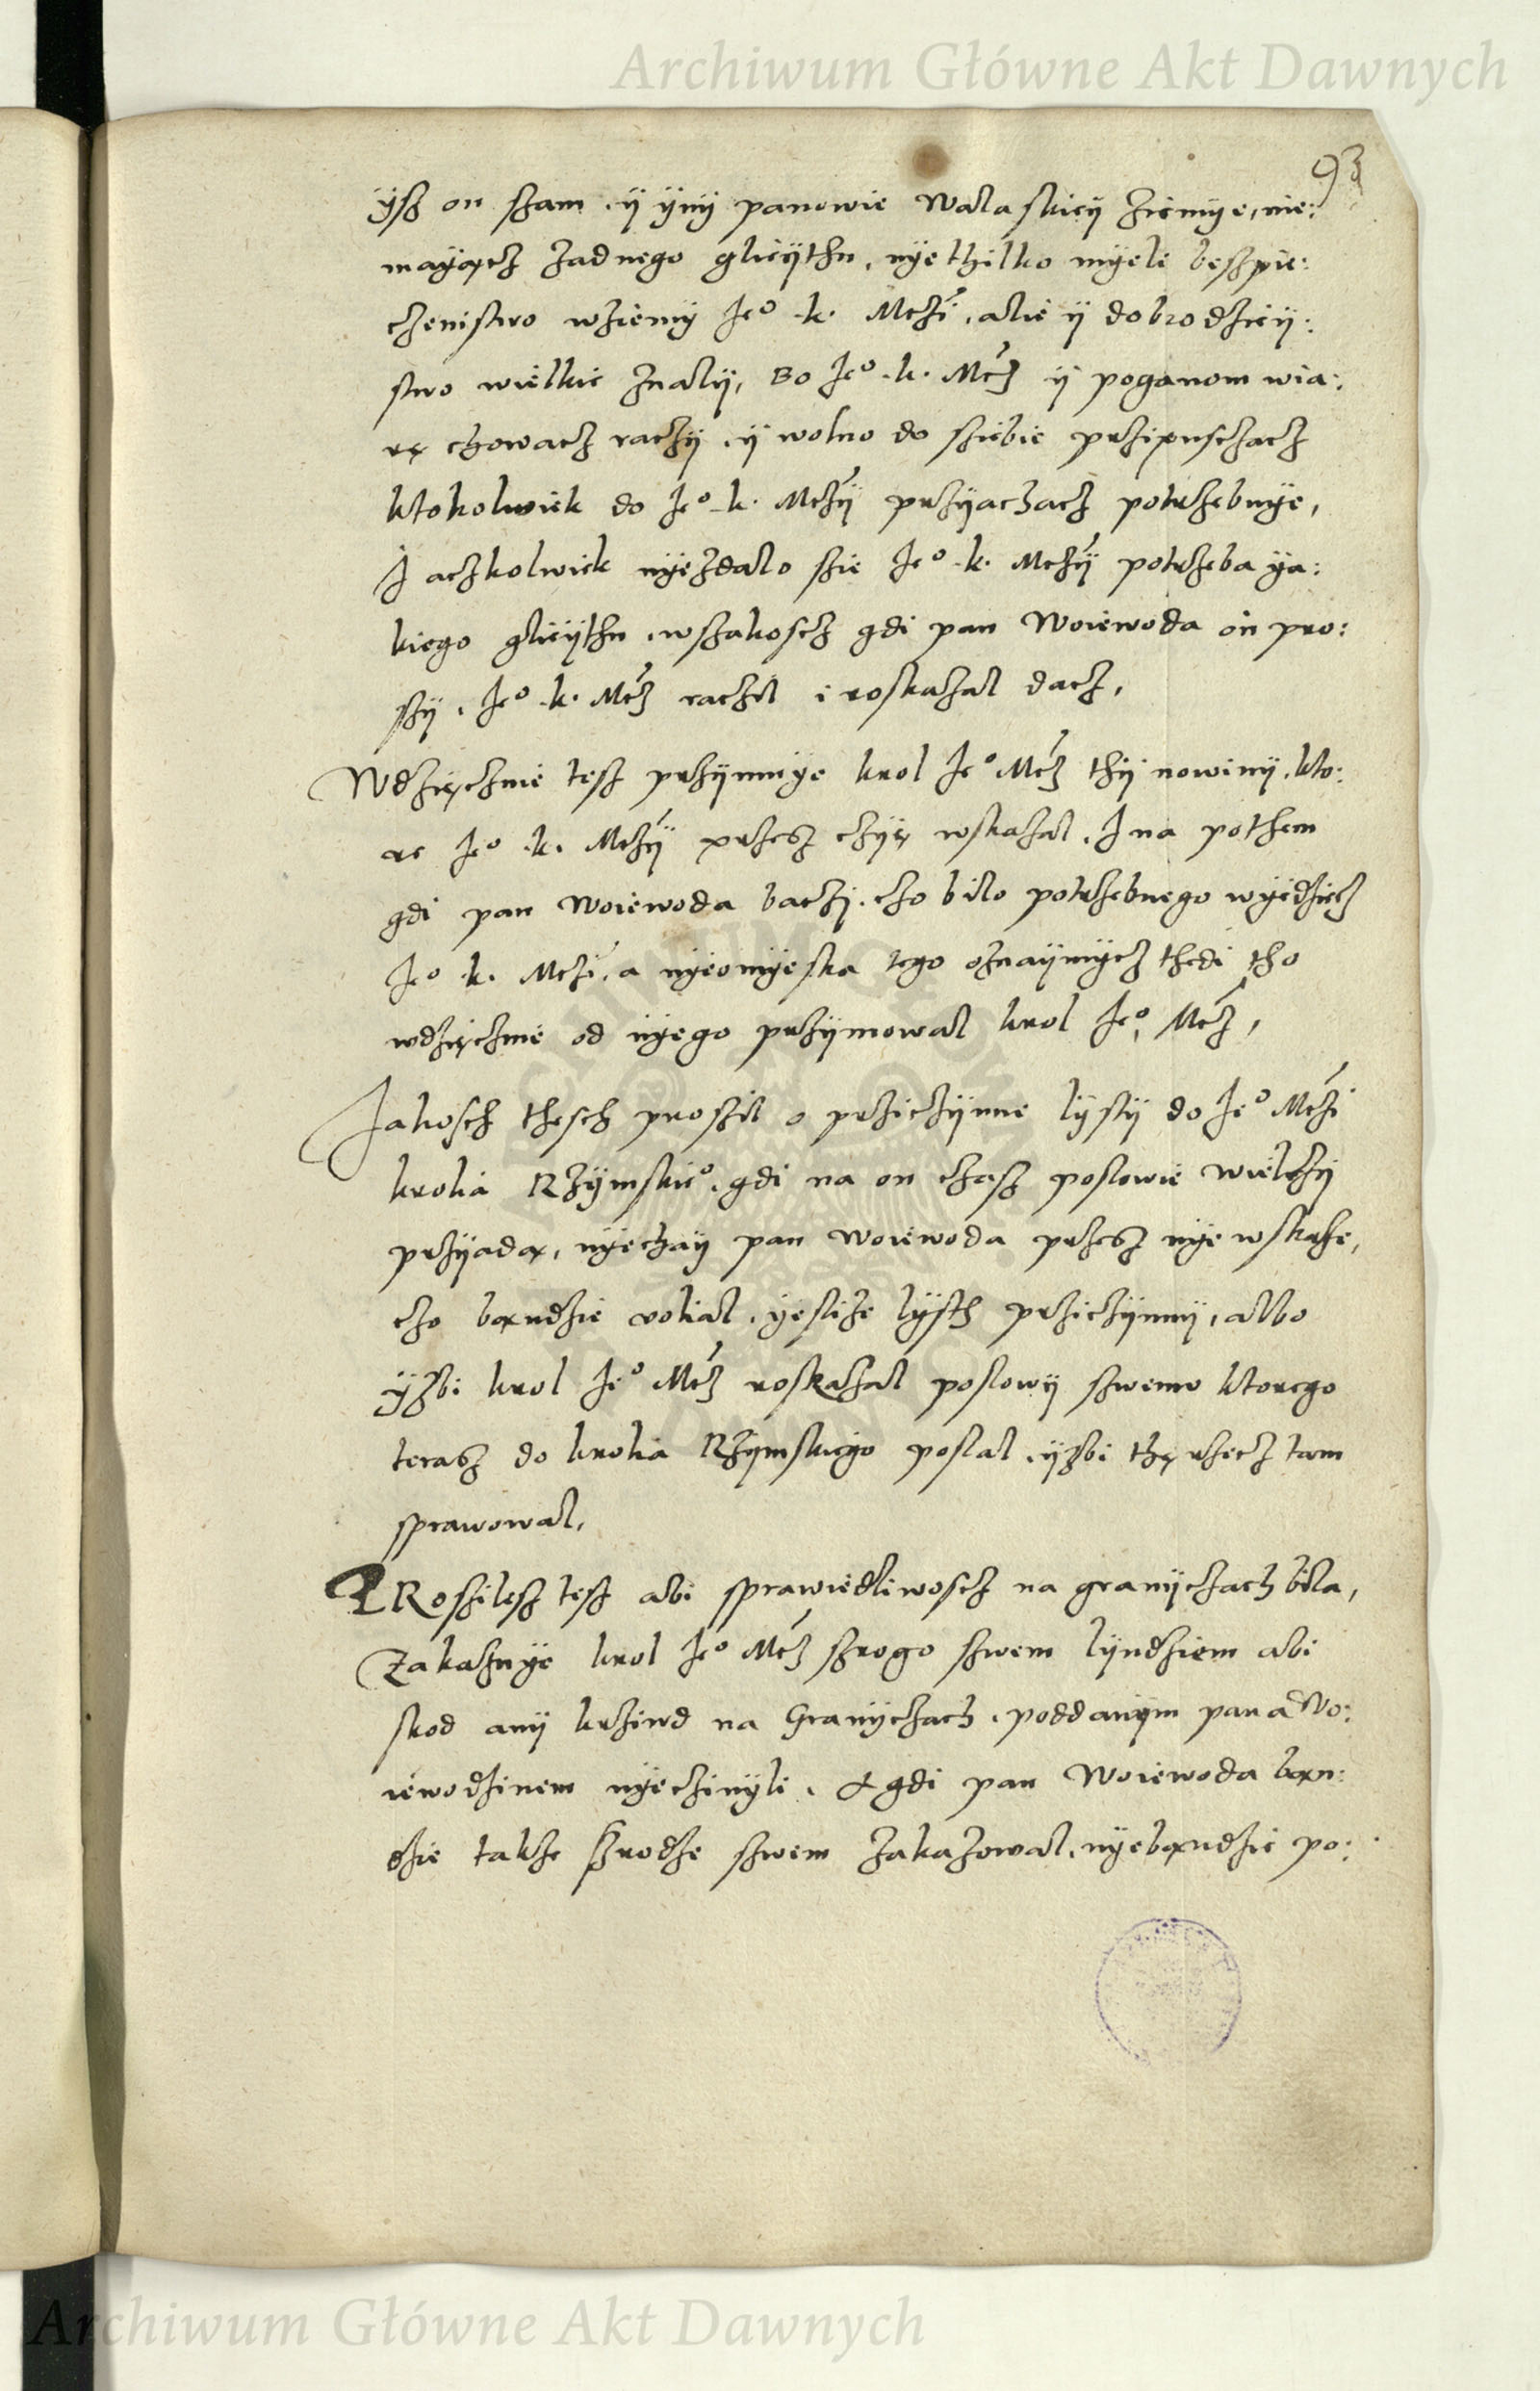 Archiwum Główne Akt Dawnych
93
ysz on szam . y ÿnÿ panowie Wala skieÿ Ziemÿe, nie:
maÿącz zadnego glieÿthu, nÿe thÿlko mÿeli beszpie:
czenstwo wziemÿ Jeo . k. Mczi . alie ÿ dobrodzieÿ:
stwo wielkie znalÿ, Bo Jeo . k. Mcz ÿ poganom wia:
rę chowacz raczÿ . ÿ wolno do sziebie przipusczacz
ktokolwiek do Jeo . k. Mczÿ przÿachacz potrzebuÿe,
J aczkolwiek nÿezdalo szie Jeo . k. Mczÿ potrzeba ÿa:
kiego glieÿthu . wszakoscz gdi pan Woiewoda on pro:
szÿ . Jeo . k. Mcz raczil i roskazal dacz,
Wdzięcznie tesz przÿmuÿe krol Jeo Mcz thÿ nowinÿ, kto:
re Jeo . k. Mczÿ przesz cziÿę wskazal . J na pothem
gdi pan Woiewoda baczi . czo bilo potrzebnego wÿedziecz
Jeo . k. Mczi . a nÿeomÿeska tego oznaÿmÿcz thedi tho
wdzięcznie od nÿego przÿmowal krol Jeo Mcz,
Jakosch thesch proszil o prziczÿnne lÿstÿ do Jeo Mczi
krolia Rzÿmskieo . gdi na on czasz poslowie wielczÿ
przÿadą, nÿechaÿ pan Woiewoda przesz nÿe wskaże,
czo bąndzie volial . ÿeslize lÿsth prziczÿnnÿ, albo
ÿżbi krol Jeo Mcz roskazal poslowÿ szwemu ktorego
terasz do krolia Rzÿmskiego poslal . ÿżbi thę rzecz tam
sprawowal,
PRoszilesz tesz abi sprawiedliwoscz na granÿczach bila,
Zakazuÿe krol Jeo Mcz szrogo szwem lÿudziem abi
skod anÿ krziwd na Granÿczach . poddanÿm pana Wo:
iewodzinem nÿeczinÿli . A gdi pan Woiewoda bąn:
dzie takze szrodze szwem zakazowal . nÿebąndzie po:
Archiwum Główne Akt Dawnych